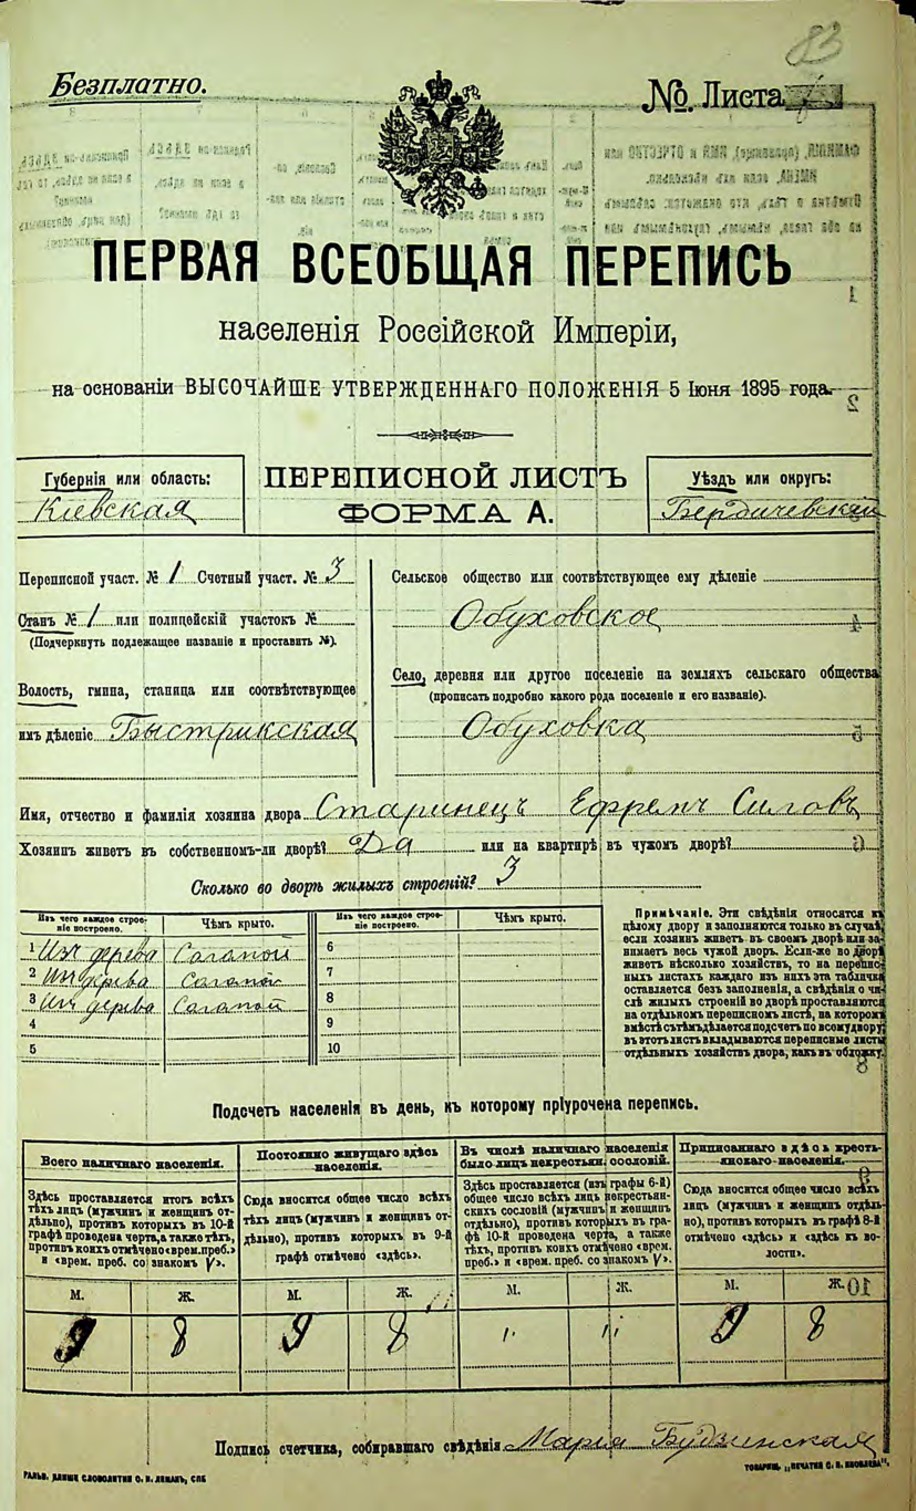 83
Безплатно.
№. Листа
ПЕРВАЯ ВСЕОБЩАЯ ПЕРЕПИСЬ
населенія Россійской Имперіи,
на основаніи ВЫСОЧАЙШЕ УТВЕРЖДЕННАГО ПОЛОЖЕНІЯ 5 Іюня 1895 года.
Губернія или область:
Кіевская
ПЕРЕПИСНОЙ ЛИСТЪ
ФОРМА А.
Уѣздъ или округъ:
Бердичевскій
Переписной участ. № 1 Счетный участ. № 3
Станъ № 1 или полицейскій участокъ №
(Подчеркнуть подлежащее названіе и проставить №).
Волость, гмина, станица или соотвѣтствующее
имъ дѣленіе Быстрикская
Сельское общество или соотвѣтствующее ему дѣленіе
Обуховское
Село, деревня или другое поселеніе на земляхъ сельскаго общества
(прописать подробно какого рода поселеніе и его названіе).
Обуховка
Имя, отчество и фамилія хозяина двора Старинецъ Ефремъ Силовъ
Хозяинъ живетъ въ собственномъ-ли дворѣ? Да или на квартирѣ въ чужомъ дворѣ?
Сколько во дворѣ жилыхъ строеній? 3
Изъ чего каждое строе-
ніе построено.
Чѣмъ крыто.
Изъ чего каждое строе-
ніе построено.
Чѣмъ крыто.
1 Изъ дерева Соломой 6
2 Изъ дерева Соломой 7
3 Изъ дерева Соломой 8
4 9
5 10
Примѣчаніе. Эти свѣдѣнія относятся къ
цѣлому двору и заполняются только въ случаѣ,
если хозяинъ живетъ въ своемъ дворѣ или за-
нимаетъ весь чужой дворъ. Если-же во дворѣ
живетъ нѣсколько хозяйствъ, то на перепис-
ныхъ листахъ каждаго изъ нихъ эта табличка
оставляется безъ заполненія, а свѣдѣнія о чи-
слѣ жилыхъ строеній во дворѣ проставляются
на отдѣльномъ переписномъ листѣ, на которомъ
вмѣстѣ съ тѣмъ дѣлается подсчетъ по всему двору;
въ этотъ листъ вкладываются переписные листы
отдѣльныхъ хозяйствъ двора, какъ въ обложку.
Подсчетъ населенія въ день, къ которому пріурочена перепись.
Всего наличнаго населенія.
Здѣсь проставляется итогъ всѣхъ
тѣхъ лицъ (мужчинъ и женщинъ от-
дѣльно), противъ которыхъ въ 10-й
графѣ проведена черта, а также тѣхъ,
противъ коихъ отмѣчено «врем. преб.»
и «врем. преб. со знакомъ V».
Постоянно живущаго здѣсь
населенія.
Сюда вносится общее число всѣхъ
тѣхъ лицъ (мужчинъ и женщинъ от-
дѣльно), противъ которыхъ въ 9-й
графѣ отмѣчено «здѣсь».
Въ числѣ наличнаго населенія
было лицъ некрестьян. сословій.
Здѣсь проставляется (изъ графы 6-й)
общее число всѣхъ лицъ некрестьян-
скихъ сословій (мужчинъ и женщинъ
отдѣльно), противъ которыхъ въ гра-
фѣ 10-й проведена черта, а также
тѣхъ, противъ коихъ отмѣчено «врем.
преб.» и «врем. преб. со знакомъ V».
Приписаннаго здѣсь кресть-
янскаго населенія.
Сюда вносится общее число всѣхъ
лицъ (мужчинъ и женщинъ отдѣль-
но), противъ которыхъ въ графѣ 8-й
отмѣчено «здѣсь» и «здѣсь въ во-
лости».
М. Ж. М. Ж. М. Ж. М. Ж.
9 8 9 8 " " 9 8
Подпись счетчика, собиравшаго свѣдѣнія Марія Будзинская
ГАЛЬВ. ДАННЫЕ СЛОВОЛИТНИ О. И. ЛЕМАНЪ, СПБ
ТОВАРИЩ. „ПЕЧАТНЯ С. П. ЯКОВЛЕВА".